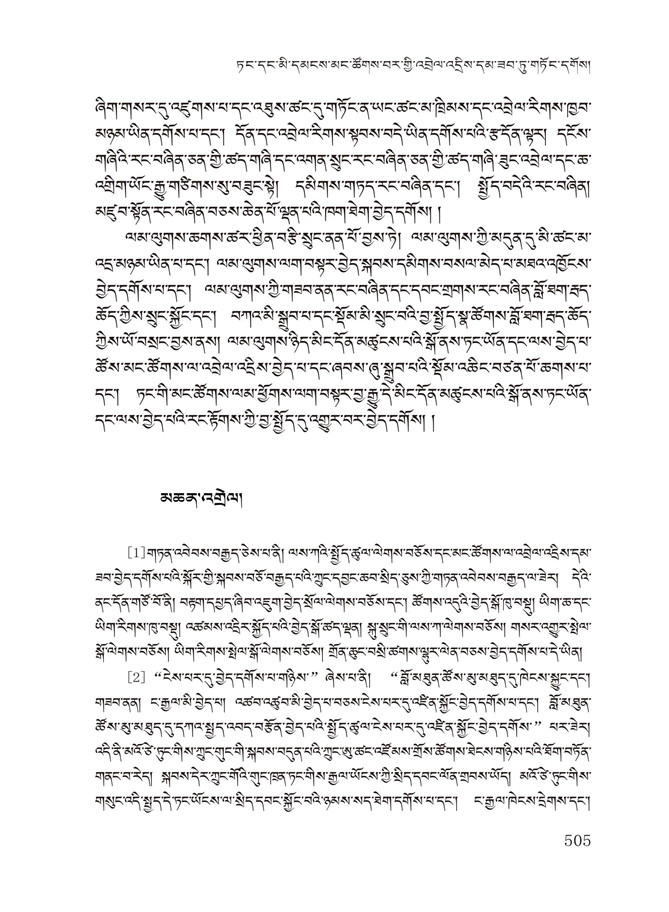 ཏང་དང་མི་དམངས་མང་ཚོགས་བར་གྱི་འབྲེལ་འདྲིས་དམ་ཟབ་ཏུ་གཏོང་དགོས།
ཞིག་གསར་དུ་འཛུགས་པ་དང་འཐུས་ཚང་དུ་གཏོང་ན་ཡང་ཚང་མ་ཁྲིམས་དང་འབྲེལ་རིགས་ཁྱབ་
མཉམ་ཡིན་དགོས་པ་དང་། དོན་དང་འབྲེལ་རིགས་སྟབས་བདེ་ཡིན་དགོས་པའི་རྩ་དོན་ལྟར། དངོས་
གཞིའི་རང་བཞིན་ཅན་གྱི་ཚད་གཞི་དང་འགན་སྲུང་རང་བཞིན་ཅན་གྱི་ཚད་གཞི་ཟུང་འབྲེལ་དང་ཆ་
འགྲིག་ཡོང་རྒྱུ་གཙིགས་སུ་བཟུང་སྟེ། དམིགས་གཏད་རང་བཞིན་དང་། སྤྱོད་བདེའི་རང་བཞིན།
མཛུབ་སྟོན་རང་བཞིན་བཅས་ཆེན་པོ་ལྡན་པའི་ཁག་ཐེག་བྱེད་དགོས། །
ལམ་ལུགས་ཆགས་ཚར་ཕྱིན་བརྩི་སྲུང་ནན་པོ་བྱས་ཏེ། ལམ་ལུགས་ཀྱི་མདུན་དུ་མི་ཚང་མ་
འདྲ་མཉམ་ཡིན་པ་དང་། ལམ་ལུགས་ལག་བསྟར་བྱེད་སྐབས་དམིགས་བསལ་མེད་པ་མཐའ་འཁྱོངས་
བྱེད་དགོས་པ་དང་། ལམ་ལུགས་ཀྱི་གཟབ་ནན་རང་བཞིན་དང་དབང་གྲགས་རང་བཞིན་བློ་ཐག་རྦད་
ཆོད་ཀྱིས་སྲུང་སྐྱོང་དང་། བཀའ་མི་སྒྲུབ་པ་དང་སྡོམ་མི་སྲུང་བའི་བྱ་སྤྱོད་སྣ་ཚོགས་བློ་ཐག་རྦད་ཆོད་
ཀྱིས་ཡོ་བསྲང་བྱས་ནས། ལམ་ལུགས་ཉིད་མིང་དོན་མཚུངས་པའི་སྒོ་ནས་ཏང་ཡོན་དང་ལས་བྱེད་པ་
ཚོས་མང་ཚོགས་ལ་འབྲེལ་འདྲིས་བྱེད་པ་དང་ཞབས་ཞུ་སྒྲུབ་པའི་སྡོམ་འཆིང་བཙན་པོ་ཆགས་པ་
དང་། ཏང་གི་མང་ཚོགས་ལམ་ཕྱོགས་ལག་བསྟར་བྱ་རྒྱུ་དེ་མིང་དོན་མཚུངས་པའི་སྒོ་ནས་ཏང་ཡོན་
དང་ལས་བྱེད་པའི་རང་རྟོགས་ཀྱི་བྱ་སྤྱོད་དུ་འགྱུར་བར་བྱེད་དགོས། །
མཆན་འགྲེལ།
[1]གཏན་འབེབས་བརྒྱད་ཅེས་པ་ནི། ལས་ཀའི་སྤྱོད་ཚུལ་ལེགས་བཅོས་དང་མང་ཚོགས་ལ་འབྲེལ་འདྲིས་དམ་
ཟབ་བྱེད་དགོས་པའི་སྐོར་གྱི་སྐབས་བཅོ་བརྒྱད་པའི་ཀྲུང་དབྱང་ཆབ་སྲིད་ཅུས་ཀྱི་གཏན་འབེབས་བརྒྱད་ལ་ཟེར། དེའི་
ནང་དོན་གཙོ་བོ་ནི། བརྟག་དཔྱད་ཞིབ་འཇུག་བྱེད་སྲོལ་ལེགས་བཅོས་དང་། ཚོགས་འདུའི་བྱེད་སྒོ་ཁུ་བསྡུ། ཡིག་ཆ་དང་
ཡིག་རིགས་ཁུ་བསྡུ། འཚམས་འདྲིར་སྐྱོད་པའི་བྱེད་སྒོ་ཚད་ལྡན། སྐུ་སྲུང་གི་ལས་ཀ་ལེགས་བཅོས། གསར་འགྱུར་སྤེལ་
སྒོ་ལེགས་བཅོས། ཡིག་རིགས་སྤེལ་སྒོ་ལེགས་བཅོས། གྲོན་ཆུང་བསྲི་ཚགས་ལྷུར་ལེན་བཅས་བྱེད་དགོས་པ་དེ་ཡིན།
[2] “ངེས་པར་དུ་བྱེད་དགོས་པ་གཉིས་” ཞེས་པ་ནི། “བློ་མཐུན་ཚོས་མུ་མཐུད་དུ་ཁེངས་སྐྱུང་དང་།
གཟབ་ནན། ང་རྒྱལ་མི་བྱེད་པ། འཚབ་འཚུབ་མི་བྱེད་པ་བཅས་ངེས་པར་དུ་འཛིན་སྐྱོང་བྱེད་དགོས་པ་དང་། བློ་མཐུན་
ཚོས་མུ་མཐུད་དུ་དཀའ་སྤྱད་འབད་བརྩོན་བྱེད་པའི་སྤྱོད་ཚུལ་ངེས་པར་དུ་འཛིན་སྐྱོང་བྱེད་དགོས་” པར་ཟེར།
འདི་ནི་མའོ་ཙེ་ཏུང་གིས་ཀྲུང་གུང་གི་སྐབས་བདུན་པའི་ཀྲུང་ཨུ་ཚང་འཛོམས་གྲོས་ཚོགས་ཐེངས་གཉིས་པའི་ཐོག་བཏོན་
གནང་བ་རེད། སྐབས་དེར་ཀྲུང་གོའི་གུང་ཁྲན་ཏང་གིས་རྒྱལ་ཡོངས་ཀྱི་སྲིད་དབང་ལོན་གྲབས་ཡོད། མའོ་ཙེ་ཏུང་གིས་
གསུང་འདི་སྤྱད་དེ་ཏང་ཡོངས་ལ་སྲིད་དབང་སྐྱོང་བའི་ཉམས་སད་ཐེག་དགོས་པ་དང་། ང་རྒྱལ་ཁེངས་དྲེགས་དང་།
505